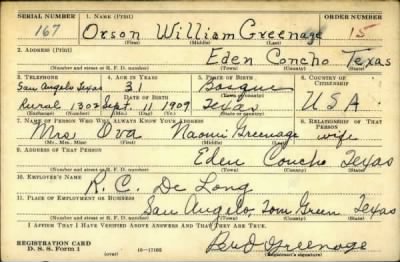 SERIAL NUMBER 1. NAME (Print) ORDER NUMBER
167 Orson William Greenage 15
(First) (Middle) (Last)
2. ADDRESS (Print)
Eden Concho Texas
(Number and street or R. F. D. number) (Town) (County) (State)
3. TELEPHONE 4. AGE IN YEARS 5. PLACE OF BIRTH 6. COUNTRY OF CITIZENSHIP
San Angelo Texas 31 Bosque
DATE OF BIRTH (Town or county)
Rural 1302 Sept. 11 1909 Texas U S A
(Exchange) (Number) (Mo.) (Day) (Yr.) (State or country)
7. NAME OF PERSON WHO WILL ALWAYS KNOW YOUR ADDRESS 8. RELATIONSHIP OF THAT PERSON
Mrs Ova Naomi Greenage wife
(Mr., Mrs., Miss) (First) (Middle) (Last)
9. ADDRESS OF THAT PERSON
Eden Concho Texas
(Number and street or R. F. D. number) (Town) (County) (State)
10. EMPLOYER'S NAME
R. C. De Long
11. PLACE OF EMPLOYMENT OR BUSINESS
San Angelo Tom Green Texas
(Number and street or R. F. D. number) (Town) (County) (State)
I AFFIRM THAT I HAVE VERIFIED ABOVE ANSWERS AND THAT THEY ARE TRUE.
REGISTRATION CARD
D. S. S. Form 1 (over) 16-17105 Bud Greenage
(Registrant's signature)